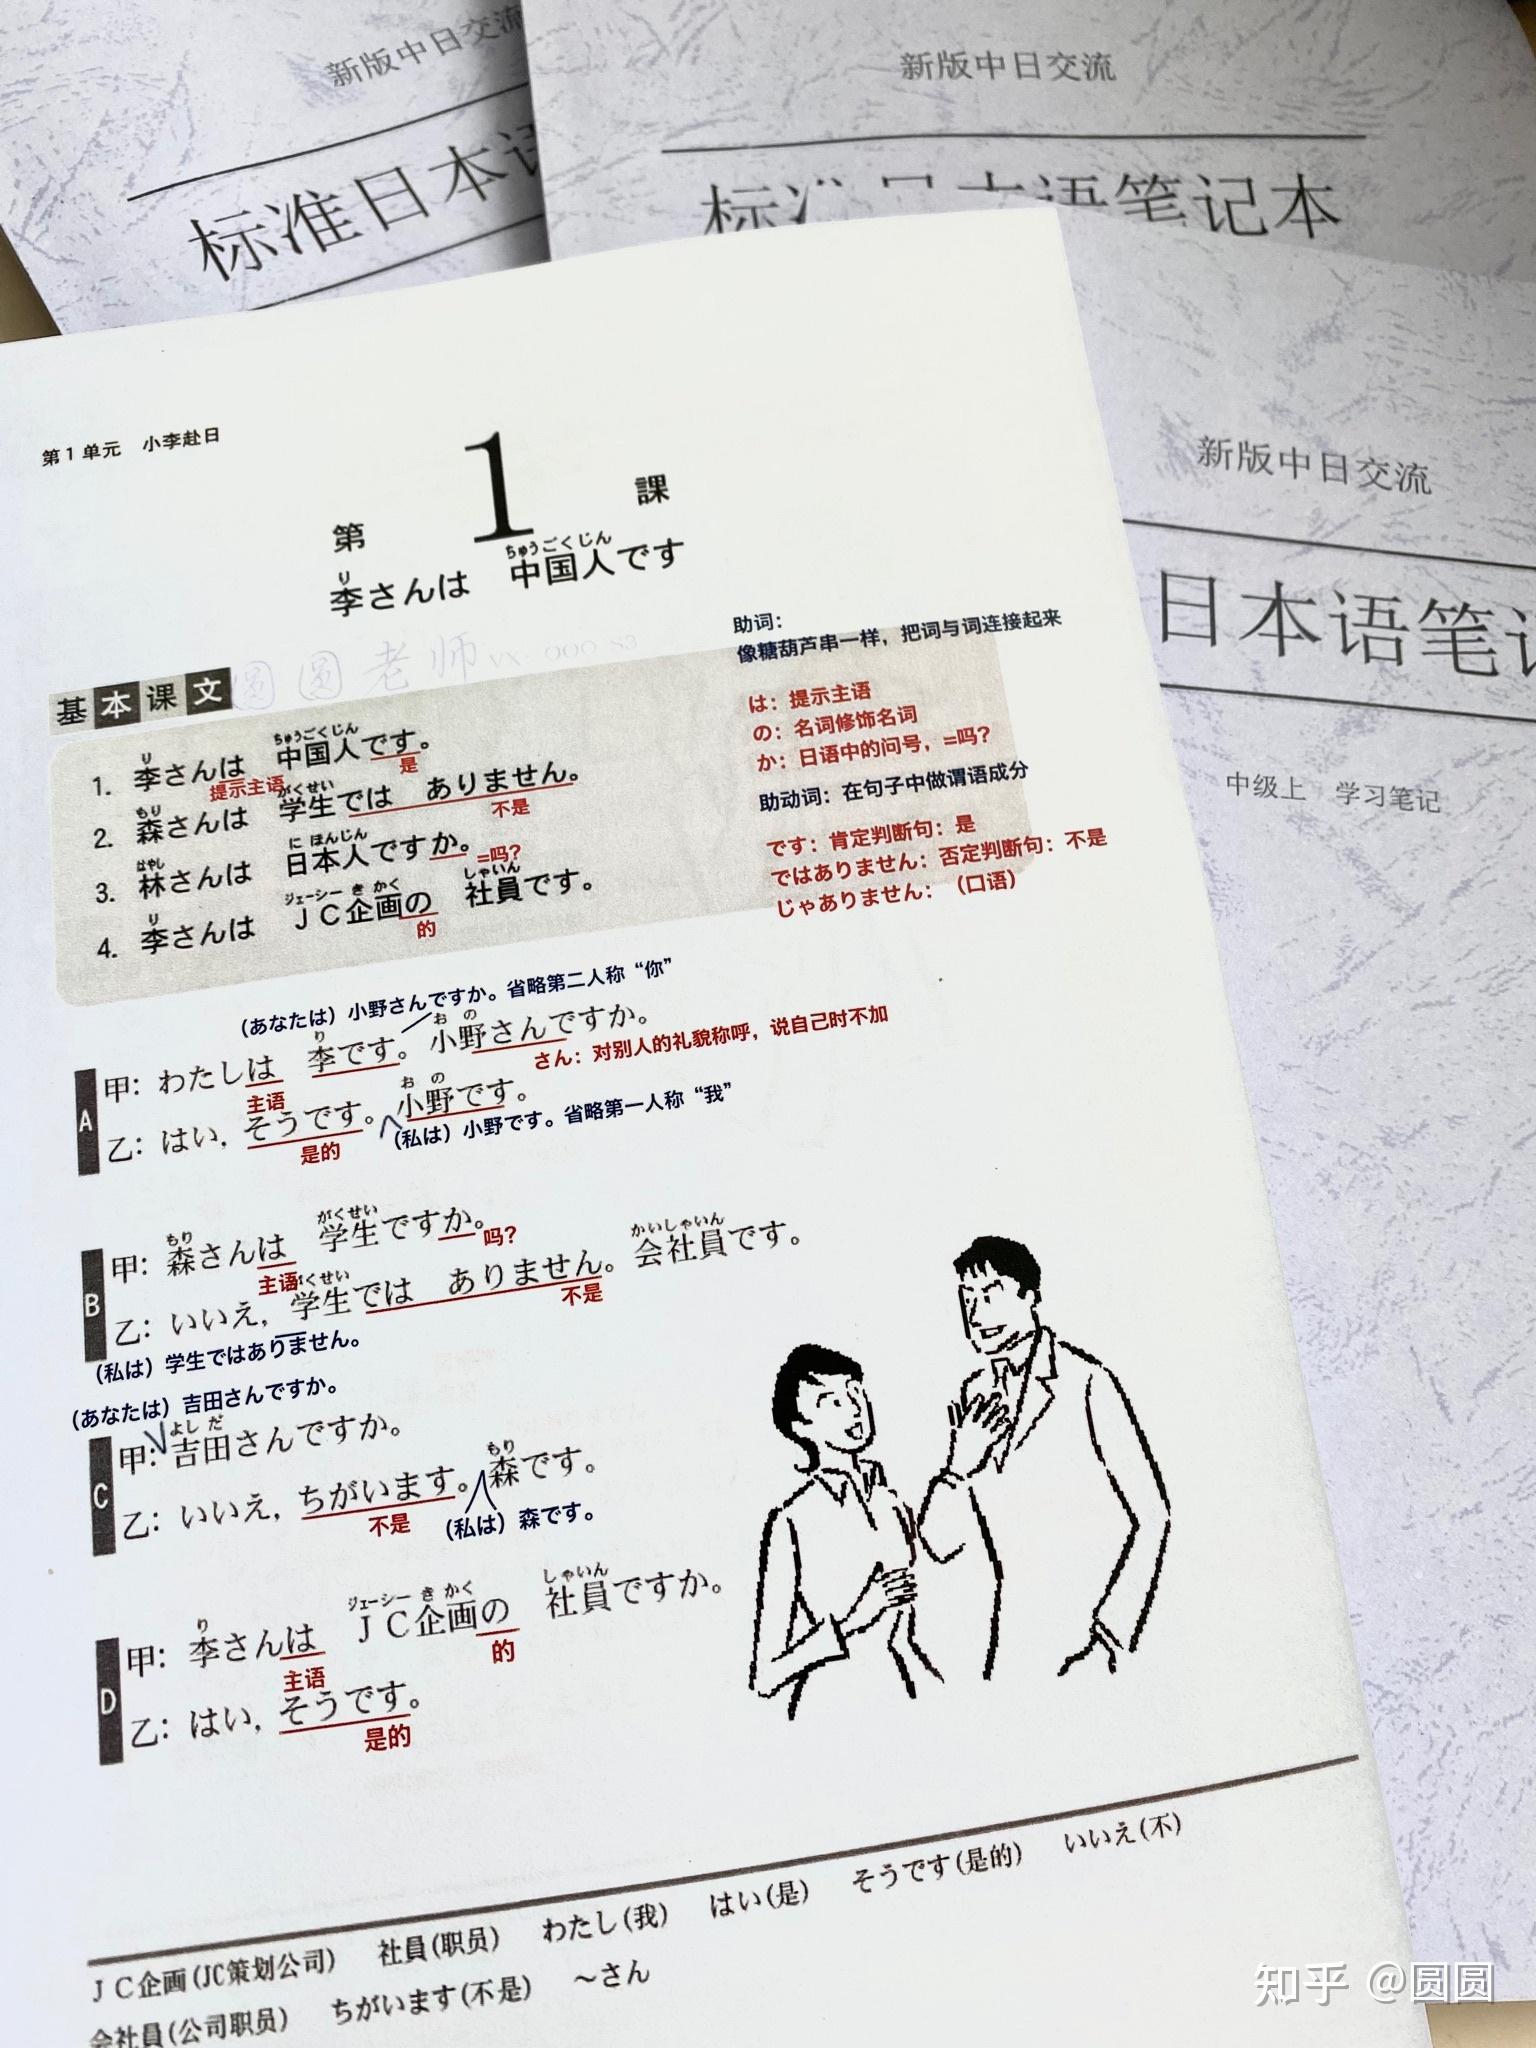 新版中日交流
标准日本语
新版中日交流
笔记本
新版中日交流
日本语笔记
中级上 学习笔记
第1单元 小李赴日
第 1 課
り ちゅうごくじん
李さんは 中国人です
圆圆老师
助词：
像糖葫芦串一样，把词与词连接起来
は：提示主语
の：名词修饰名词
か：日语中的问号，=吗？
助动词：在句子中做谓语成分
です：肯定判断句：是
ではありません：否定判断句：不是
じゃありません：（口语）
基本课文
り ちゅうごくじん
1. 李さんは 中国人です。
提示主语 是
もり がくせい
2. 森さんは 学生では ありません。
不是
はやし に ほんじん
3. 林さんは 日本人ですか。
=吗？
り ジェーシー き かく しゃいん
4. 李さんは ＪＣ企画の 社員です。
的
（あなたは）小野さんですか。省略第二人称“你”
り お の
A
甲：わたしは 李です。小野さんですか。
主语
さん：对别人的礼貌称呼，说自己时不加
お の
乙：はい，そうです。小野です。
是的
（私は）小野です。省略第一人称“我”
もり がくせい
B
甲：森さんは 学生ですか。
主语 吗？
がくせい かいしゃいん
乙：いいえ，学生では ありません。会社員です。
不是
（私は）学生ではありません。
（あなたは）吉田さんですか。
よし だ
C
甲：吉田さんですか。
もり
乙：いいえ，ちがいます。森です。
不是
（私は）森です。
り ジェーシー き かく しゃいん
D
甲：李さんは ＪＣ企画の 社員ですか。
主语 的
乙：はい，そうです。
是的
ＪＣ企画(JC策划公司) 社員(职员) わたし(我) はい(是) そうです(是的) いいえ(不)
会社員(公司职员) ちがいます(不是) ～さん
知乎 @圆圆